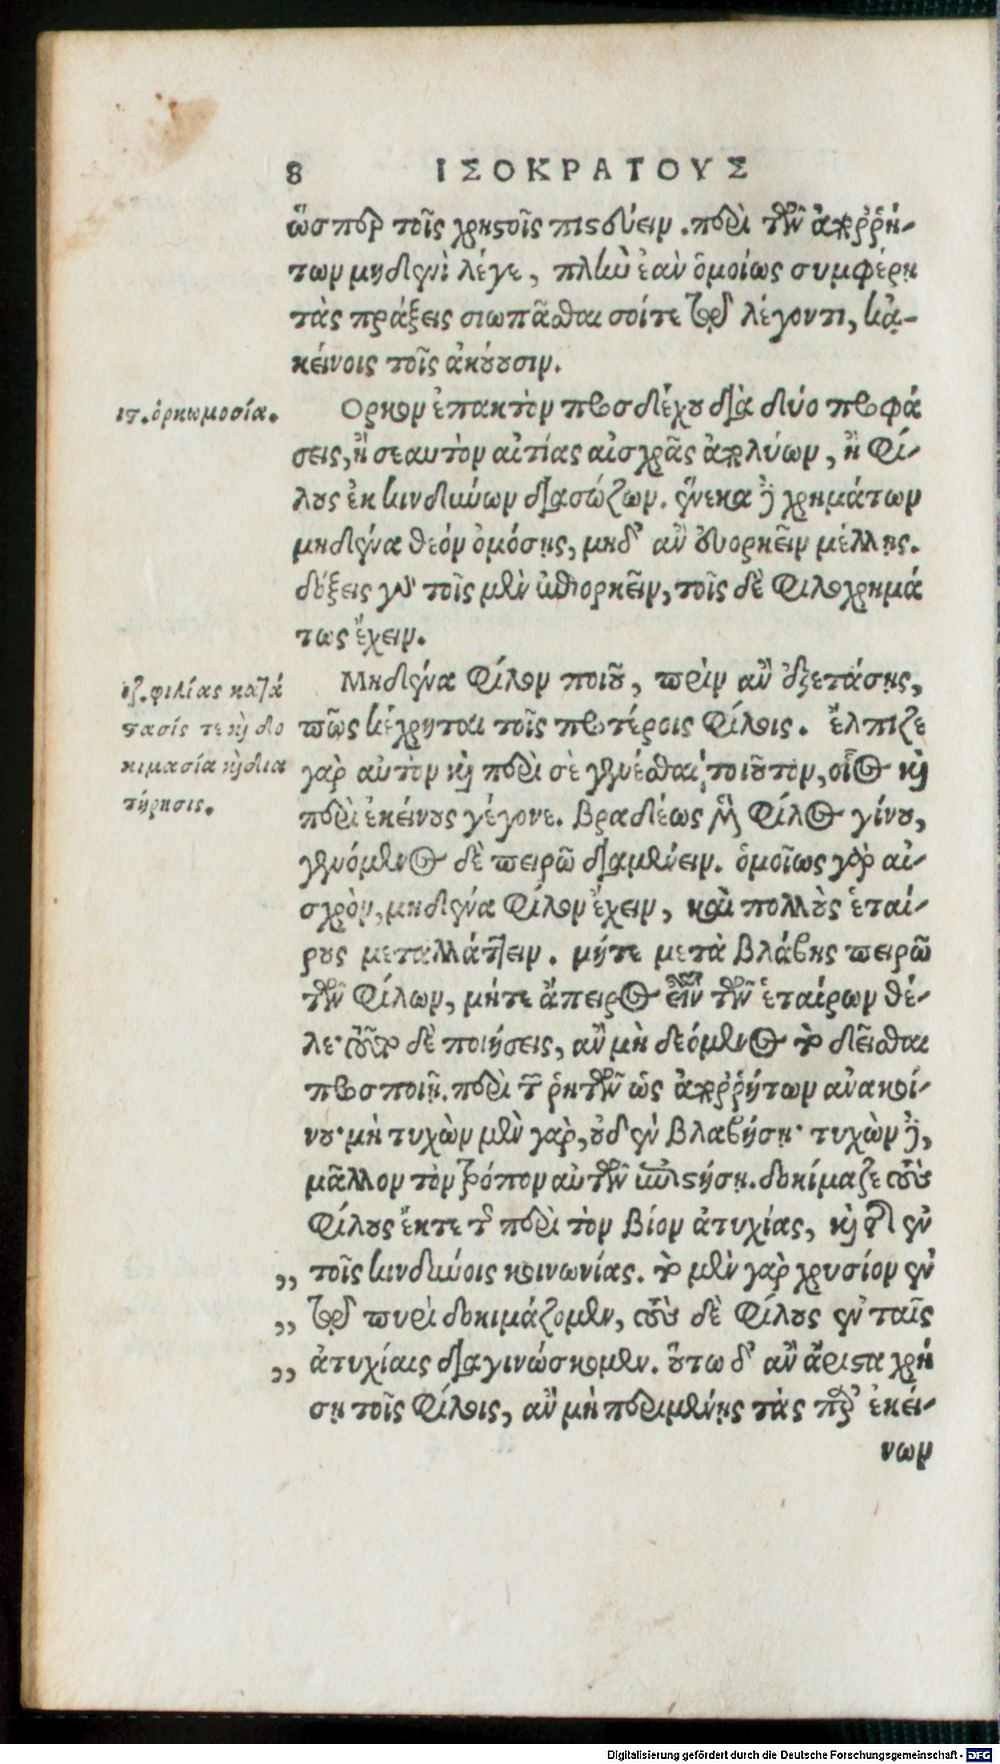 8 ΙΣΟΚΡΑΤΟΥΣ
ὥσπερ τοῖς χρηστοῖς πιστεύειν. περὶ τῶν ἀποῤῥή-
των μηδενὶ λέγε, πλὴν ἐὰν ὁμοίως συμφέρῃ
τὰς πράξεις σιωπᾶσθαι σοίτε τῷ λέγοντι, κἀ-
κείνοις τοῖς ἀκούουσιν.
ιϛ. ὁρκωμοσία.
Ορκον ἐπακτὸν προσδέχου διὰ δύο προφά
σεις, ἢ σεαυτὸν αἰτίας αἰσχρᾶς ἀπολύων, ἢ φί-
λους ἐκ κινδύνων διασώζων. ἕνεκα δὲ χρημάτων
μηδένα θεόν ὀμόσῃς, μηδ' ἂν εὐορκεῖν μέλλῃς.
δόξεις γὰρ τοῖς μὲν ἐπιορκεῖν, τοῖς δὲ φιλοχρημά
τως ἔχειν.
ιζ. φιλίας κατά
στασίς τε καὶ δο
κιμασία καὶ δια
τήρησις.
Μηδένα φίλον ποιοῦ, πρὶν ἂν ἐξετάσῃς,
πῶς κέχρηται τοῖς προτέροις φίλοις. ἔλπιζε
γὰρ αὐτὸν καὶ περὶ σὲ γενέσθαι τοιοῦτον, οἷος καὶ
περὶ ἐκείνους γέγονε. βραδέως μὲν φίλος γίνου,
γενόμενος δὲ πειρῶ διαμένειν. ὁμοίως γὰρ αἰ-
σχρὸν, μηδένα φίλον ἔχειν, καὶ πολλοὺς ἑταί-
ρους μεταλλάττειν. μήτε μετὰ βλάβης πειρῶ
τῶν φίλων, μήτε ἄπειρος εἶναι τῶν ἑταίρων θέ-
λε· τοῦτο δὲ ποιήσεις, ἂν μὴ δεόμενος τὸ δεῖσθαι
προσποιῇ. περὶ τῶν ῥητῶν ὡς ἀποῤῥήτων ἀνακοί-
νου· μὴ τυχὼν μὲν γὰρ, οὐδὲν βλαβήσῃ· τυχὼν δὲ,
μᾶλλον τὸν τρόπον αὐτῶν ἐπιστήσῃ. δοκίμαζε τοὺς
φίλους ἔκ τε τῆς περὶ τὸν βίον ἀτυχίας, καὶ τῆς ἐν
,, τοῖς κινδύνοις κοινωνίας. τὸ μὲν γὰρ χρυσίον ἐν
,, τῷ πυρὶ δοκιμάζομεν, τοὺς δὲ φίλους ἐν ταῖς
,, ἀτυχίαις διαγινώσκομεν. οὕτω δ' ἂν ἄριστα χρή
σῃ τοῖς φίλοις, ἂν μὴ περιμένῃς τὰς παρ' ἐκεί-
νων
Digitalisierung gefördert durch die Deutsche Forschungsgemeinschaft - DFG